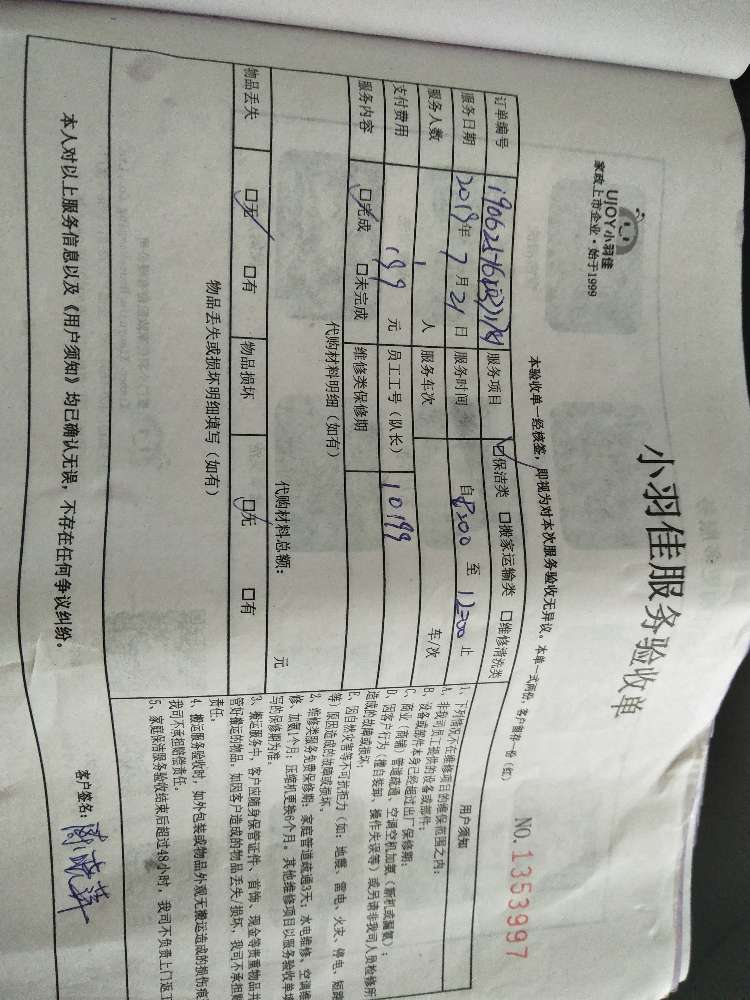 UJOY小羽佳
家政上市企业·始于1999
小羽佳服务验收单
NO.1353997
本验收单一经核签，即视为对本次服务验收无异议。本单一式两份，客户留存一份（红）
订单编号
服务项目 ☑保洁类 □搬家运输类 □维修清洗类
服务日期 2019年7月21日 服务时间 自8:00至12:00止
服务人数 1人 服务车次 车/次
支付费用 199元 员工工号（队长） 10199
服务内容 ☑完成 □未完成 维修类保修期
代购材料明细（如有）
代购材料总额： 元
物品丢失 ☑无 □有 物品损坏 ☑无 □有
物品丢失或损坏明细填写（如有）
用户须知
1、下列情况不在维修项目的维保范围之内：
A、非我司员工提供的设备或部件；
B、设备或部件本身已经超过出厂保修期；
C、商业（商铺）管道疏通、空调空机加氨（新机或漏氨）；
D、因客户行为（擅自装卸、操作失误等）或另请非我司人员检修所
造成的故障或损坏；
E、因自然灾害等不可抗拒力（如：地震、雷电、火灾、停电、短路
等）原因造成的故障或损坏。
2、维修类服务免费保修期：家庭管道疏通3天；水电维修、空调维
修、加氨1个月；压缩机更换6个月。其他维修项目以服务验收单填
写的保修期为准。
3、搬运服务中，客户应随身保管证件、首饰、现金等贵重物品并
管好搬运的物品，如因客户造成的物品丢失/损坏，我司不承担赔
责任。
4、搬运服务验收时，如外包装或物品外观无搬运造成的损伤痕
我司不承担赔偿责任。
5、家庭保洁服务验收结束后超过48小时，我司不负责上门返工
本人对以上服务信息以及《用户须知》均已确认无误，不存在任何争议纠纷。
客户签名：